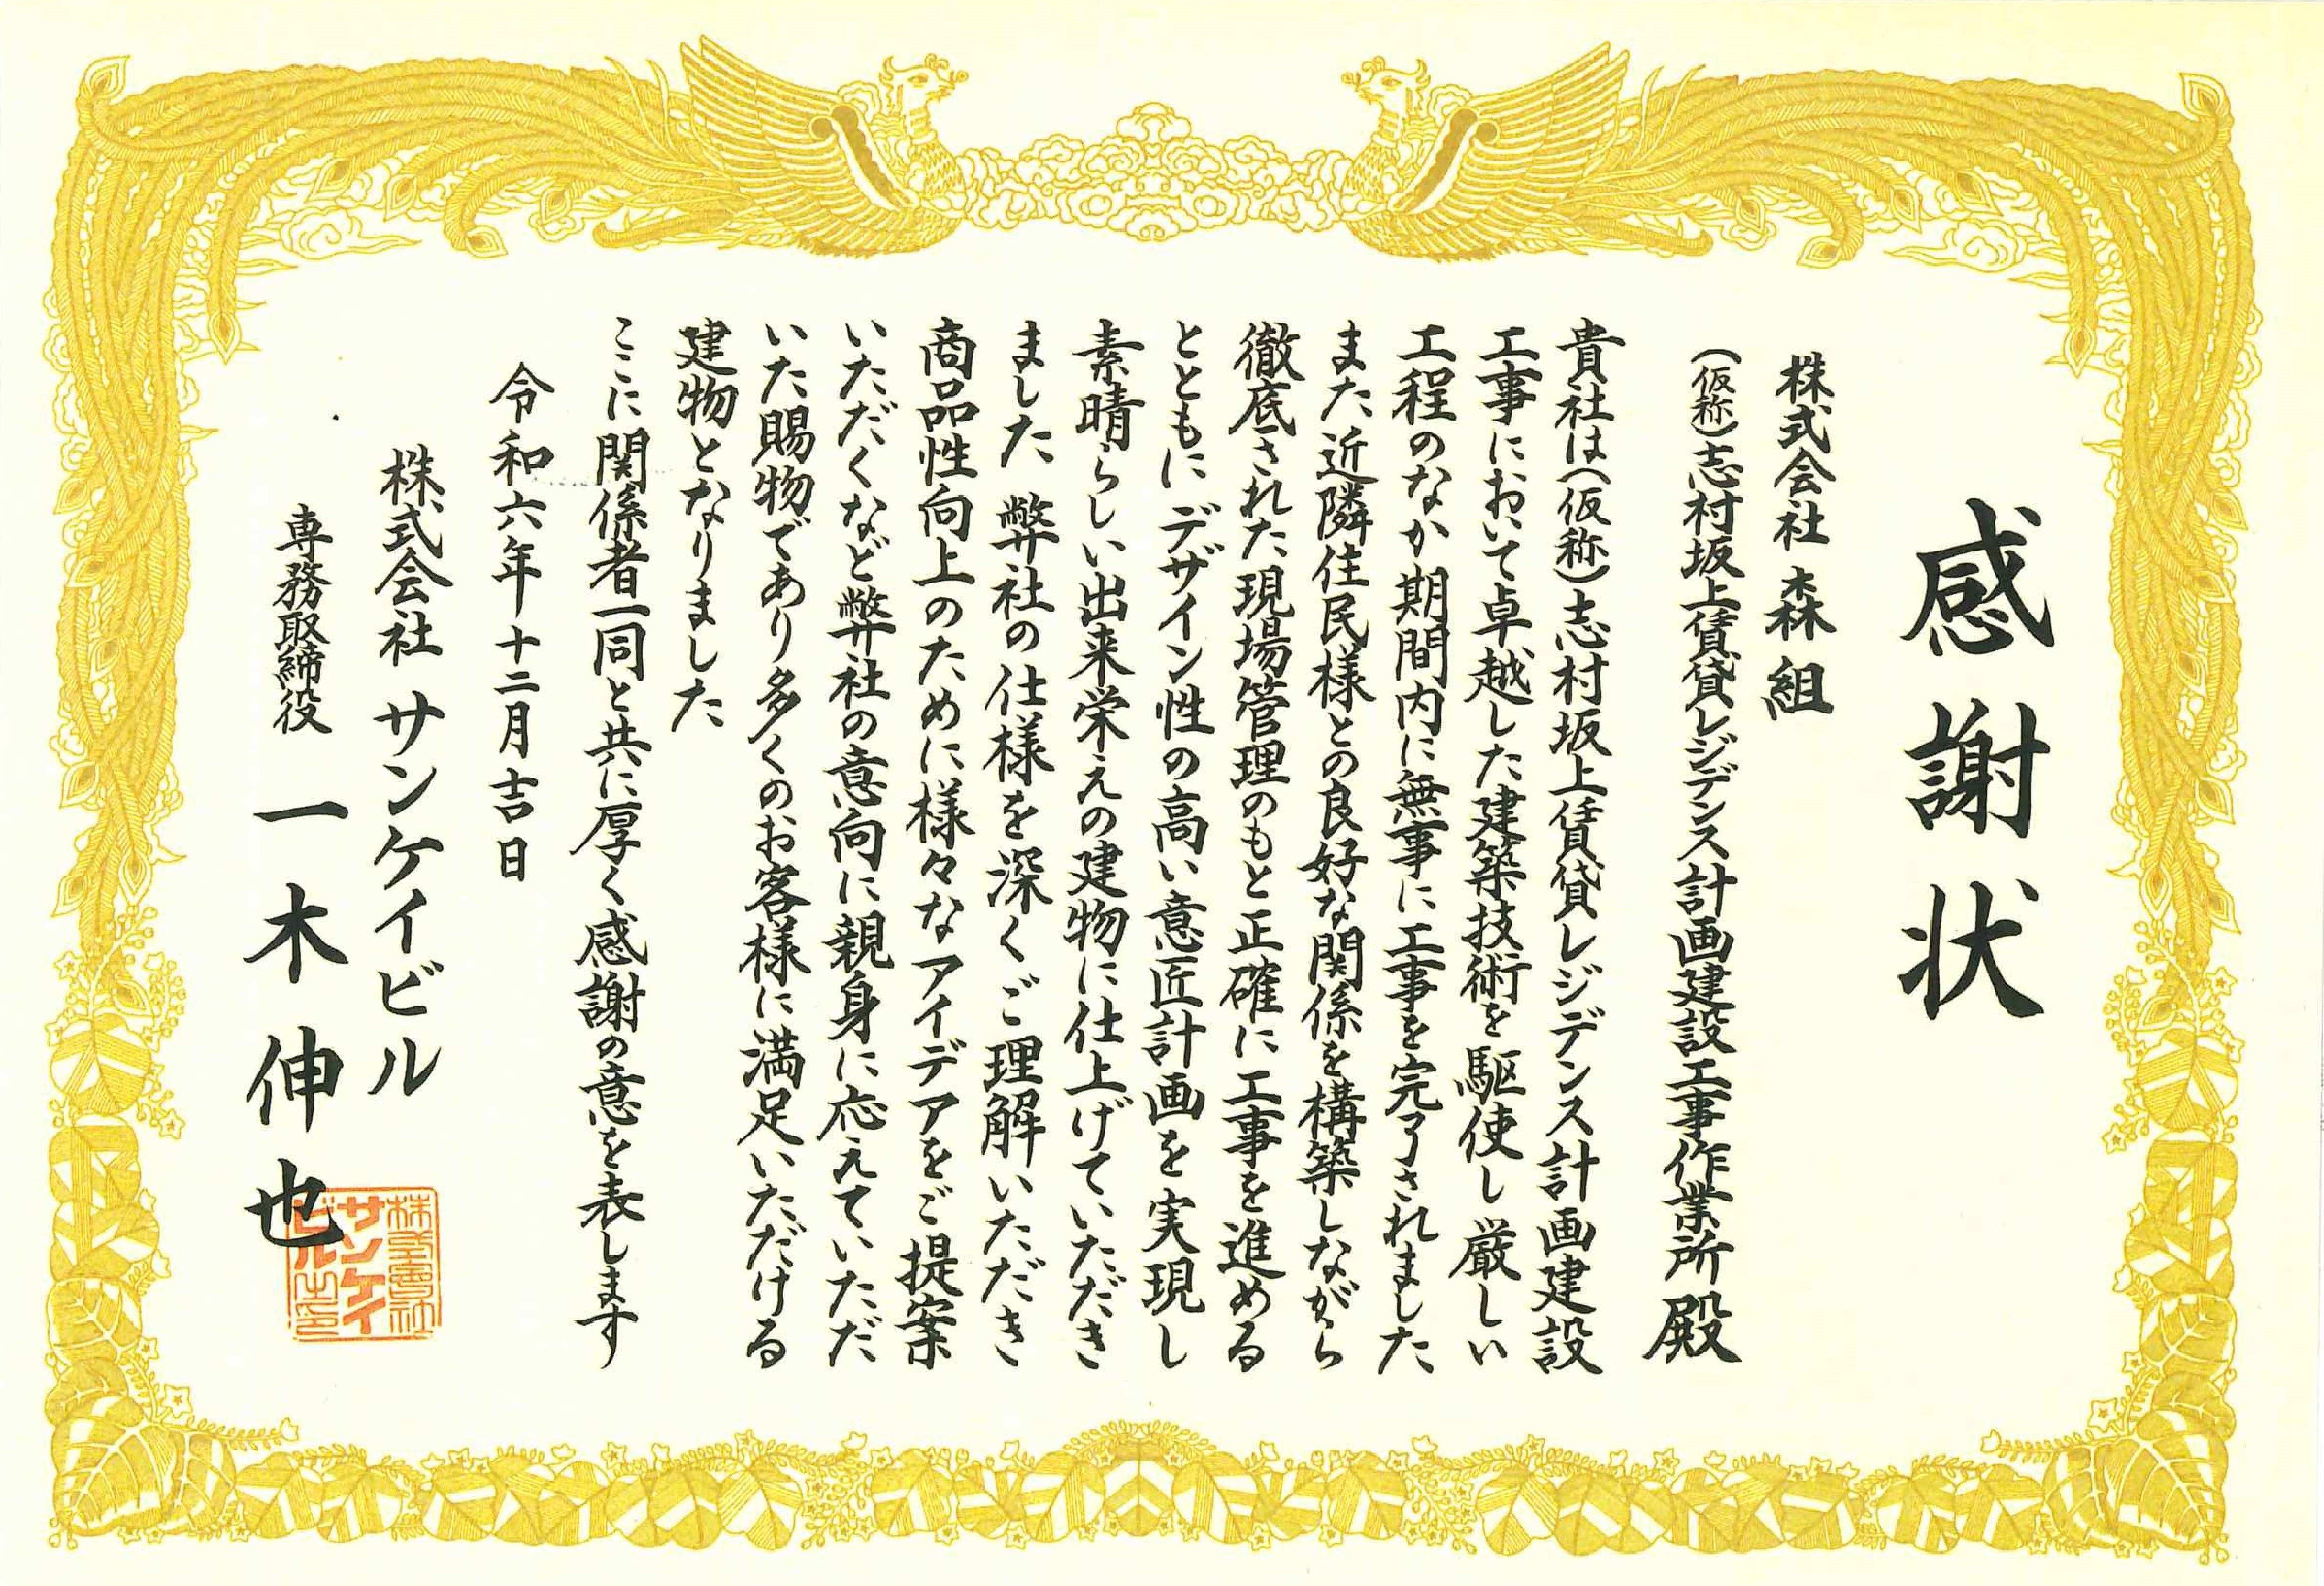 感謝状
株式会社 森組
(仮称)志村坂上賃貸レジデンス計画建設工事作業所 殿
貴社は(仮称)志村坂上賃貸レジデンス計画建設
工事において卓越した建築技術を駆使し厳しい
工程のなか期間内に無事に工事を完了されました
また近隣住民様との良好な関係を構築しながら
徹底された現場管理のもと正確に工事を進める
とともに デザイン性の高い意匠計画を実現し
素晴らしい出来栄えの建物に仕上げていただき
ました 弊社の仕様を深くご理解いただき
商品性向上のために様々なアイデアをご提案
いただくなど弊社の意向に親身に応えていただ
いた賜物であり多くのお客様に満足いただける
建物となりました
ここに関係者一同と共に厚く感謝の意を表します
令和六年十二月吉日
株式会社 サンケイビル
専務取締役 一木伸也
株式會社
サンケイ
ビル之印